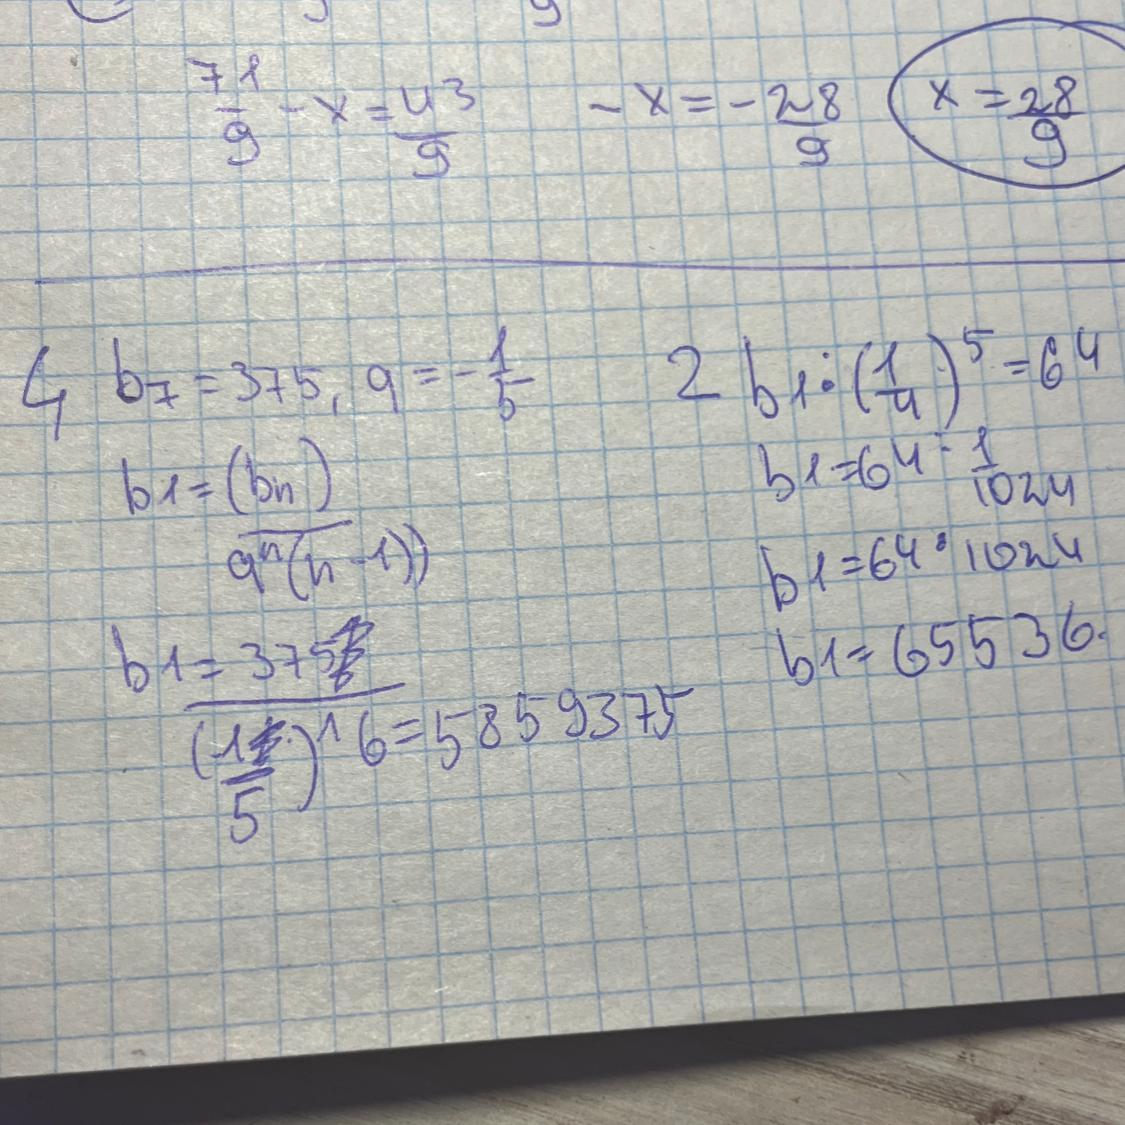 71/9 - x = 43/9   - x = - 28/9   x = 28/9
4 b7 = 375, q = - 1/5
b1 = (bn)/q^n(n-1))
b1 = 375/(1/5)^6 = 5859375
2 b1 · (1/4)^5 = 64
b1 = 64 : 1/1024
b1 = 64 · 1024
b1 = 65536.